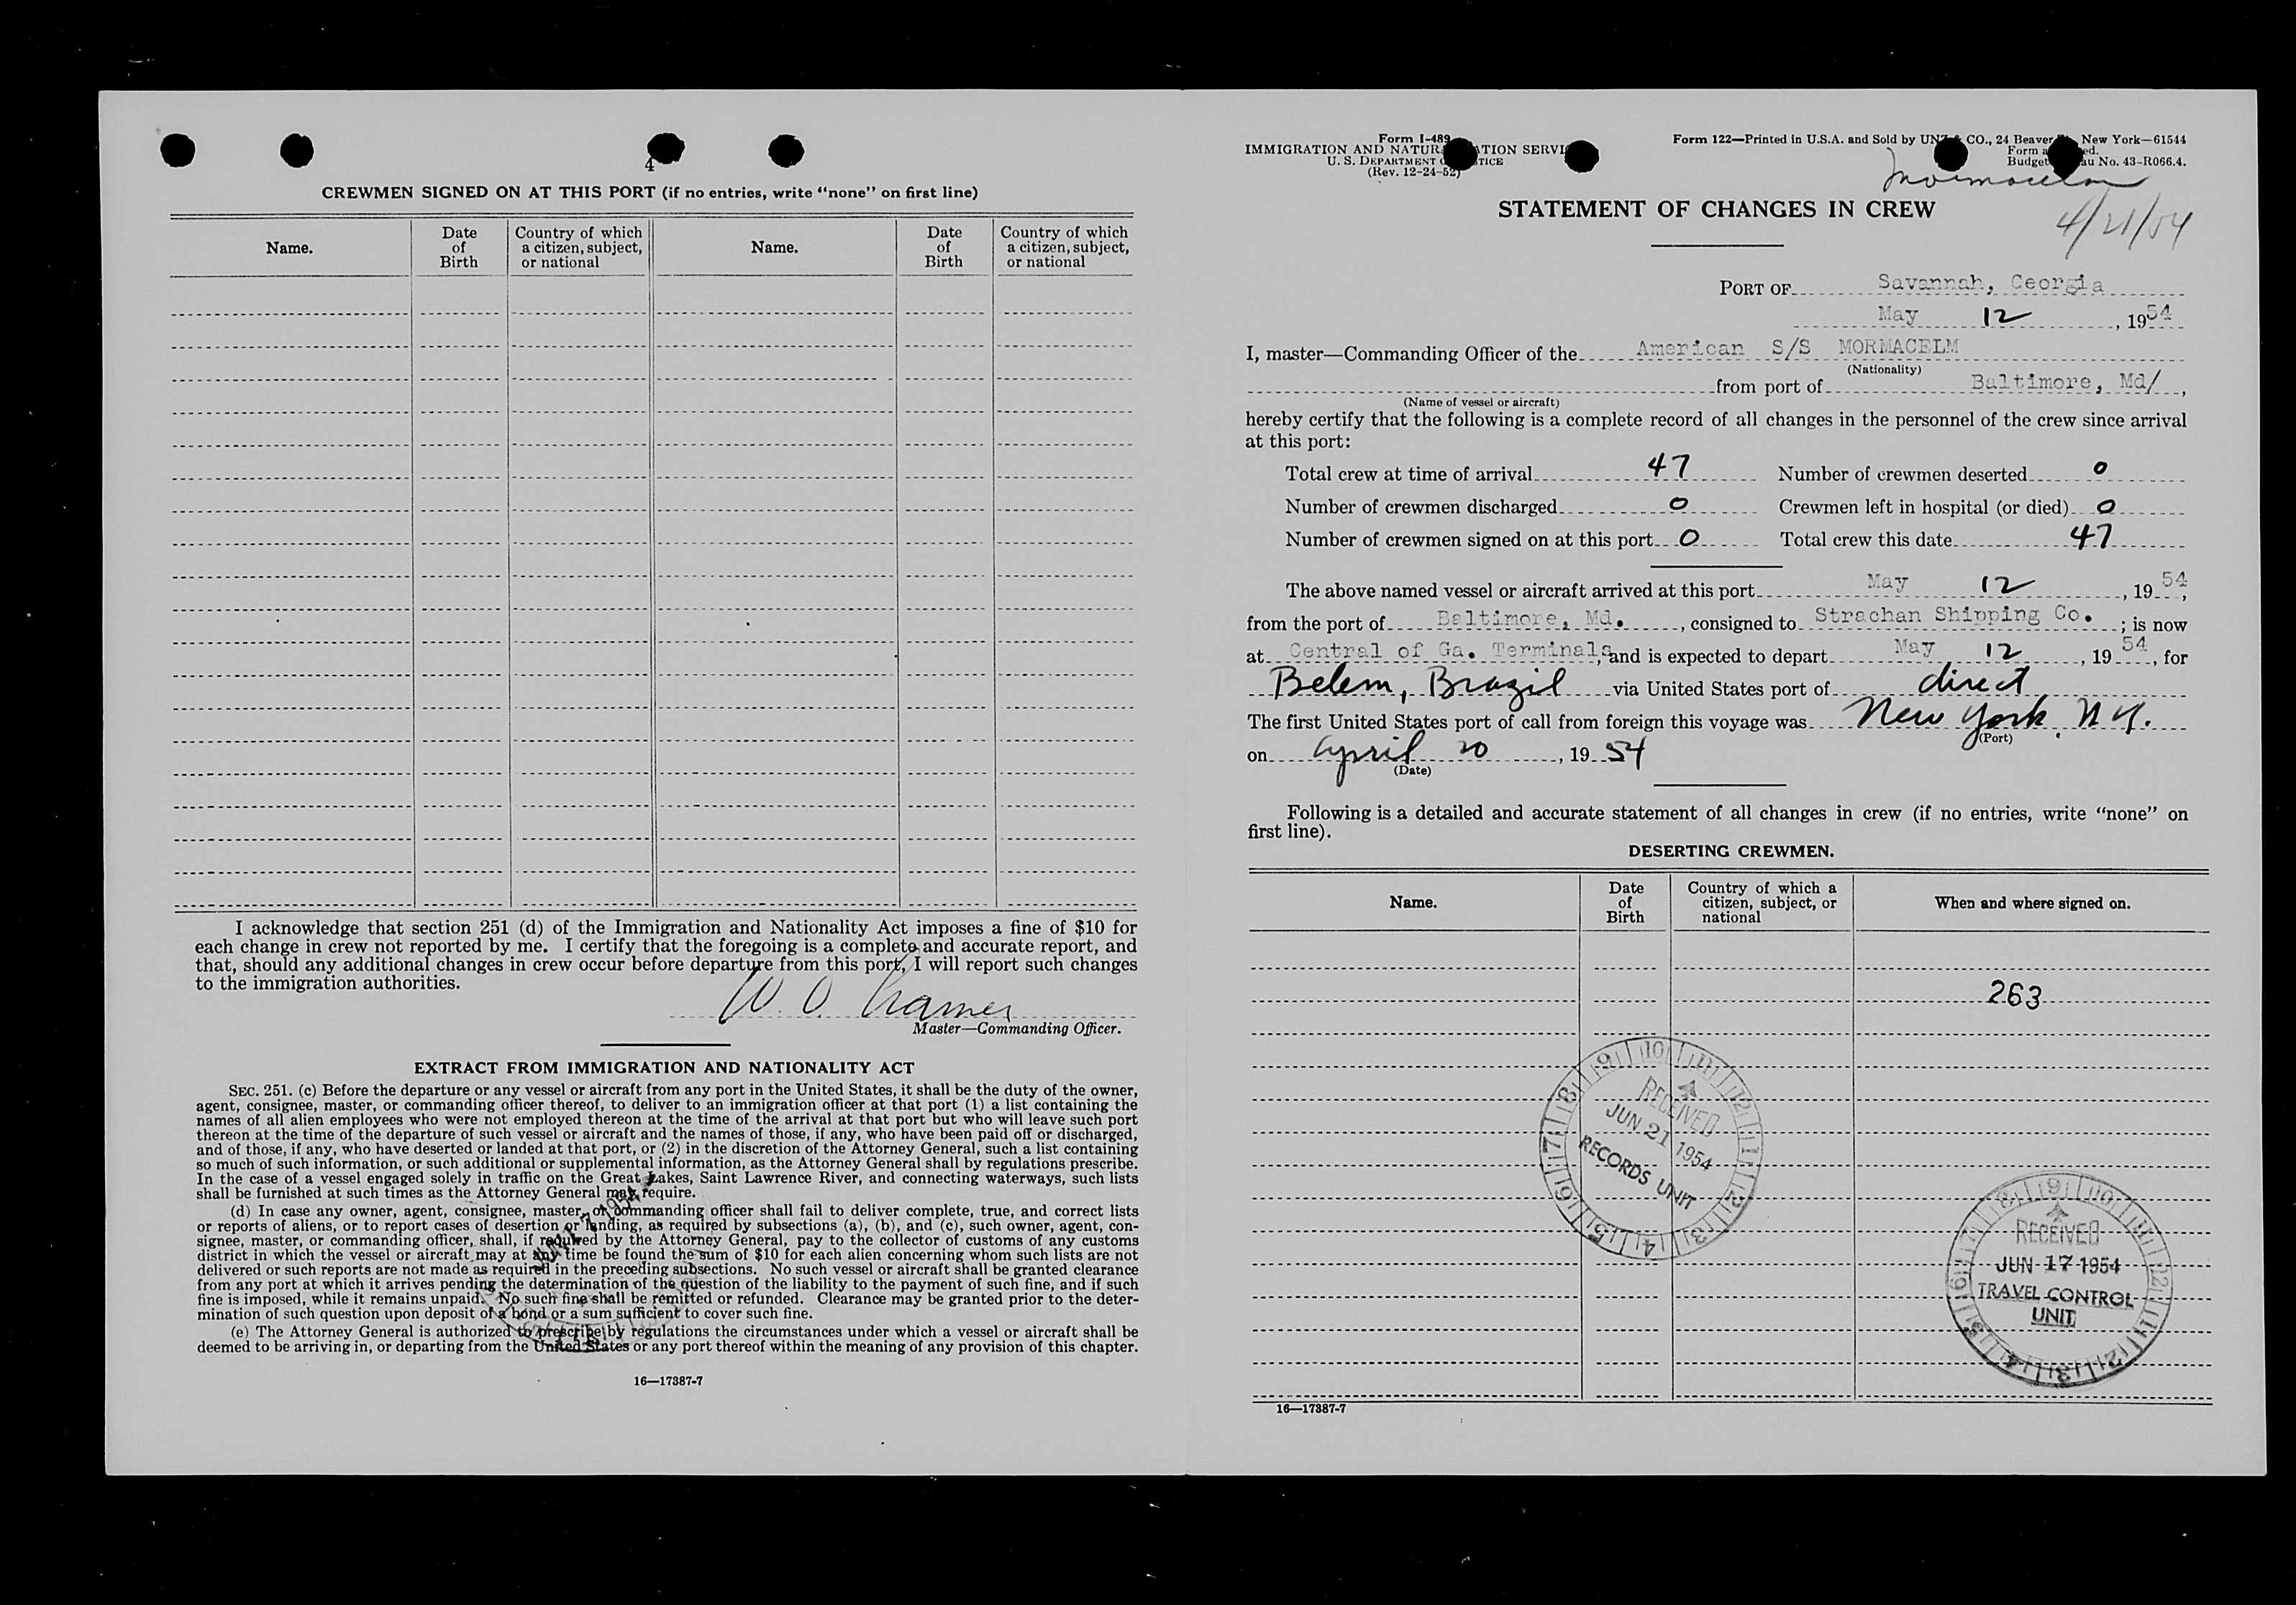 4
CREWMEN SIGNED ON AT THIS PORT (if no entries, write “none” on first line)
Name. Date of Birth Country of which a citizen, subject, or national Name. Date of Birth Country of which a citizen, subject, or national
I acknowledge that section 251 (d) of the Immigration and Nationality Act imposes a fine of $10 for
each change in crew not reported by me. I certify that the foregoing is a complete and accurate report, and
that, should any additional changes in crew occur before departure from this port, I will report such changes
to the immigration authorities.
W. O. Kramer
Master—Commanding Officer.
EXTRACT FROM IMMIGRATION AND NATIONALITY ACT
SEC. 251. (c) Before the departure or any vessel or aircraft from any port in the United States, it shall be the duty of the owner,
agent, consignee, master, or commanding officer thereof, to deliver to an immigration officer at that port (1) a list containing the
names of all alien employees who were not employed thereon at the time of the arrival at that port but who will leave such port
thereon at the time of the departure of such vessel or aircraft and the names of those, if any, who have been paid off or discharged,
and of those, if any, who have deserted or landed at that port, or (2) in the discretion of the Attorney General, such a list containing
so much of such information, or such additional or supplemental information, as the Attorney General shall by regulations prescribe.
In the case of a vessel engaged solely in traffic on the Great Lakes, Saint Lawrence River, and connecting waterways, such lists
shall be furnished at such times as the Attorney General may require.
(d) In case any owner, agent, consignee, master, or commanding officer shall fail to deliver complete, true, and correct lists
or reports of aliens, or to report cases of desertion or landing, as required by subsections (a), (b), and (c), such owner, agent, con-
signee, master, or commanding officer, shall, if required by the Attorney General, pay to the collector of customs of any customs
district in which the vessel or aircraft may at any time be found the sum of $10 for each alien concerning whom such lists are not
delivered or such reports are not made as required in the preceding subsections. No such vessel or aircraft shall be granted clearance
from any port at which it arrives pending the determination of the question of the liability to the payment of such fine, and if such
fine is imposed, while it remains unpaid. No such fine shall be remitted or refunded. Clearance may be granted prior to the deter-
mination of such question upon deposit of a bond or a sum sufficient to cover such fine.
(e) The Attorney General is authorized to prescribe by regulations the circumstances under which a vessel or aircraft shall be
deemed to be arriving in, or departing from the United States or any port thereof within the meaning of any provision of this chapter.
16—17387-7
Form I-489
IMMIGRATION AND NATURALIZATION SERVICE
U. S. DEPARTMENT OF JUSTICE
(Rev. 12-24-52)
Form 122—Printed in U.S.A. and Sold by UNZ & CO., 24 Beaver St., New York—61544
Form approved.
Budget Bureau No. 43-R066.4.
Mormacelm
4/21/54
STATEMENT OF CHANGES IN CREW
PORT OF Savannah, Georgia
May 12, 1954
I, master—Commanding Officer of the American S/S MORMACELM
(Nationality)
from port of Baltimore, Md/,
(Name of vessel or aircraft)
hereby certify that the following is a complete record of all changes in the personnel of the crew since arrival
at this port:
Total crew at time of arrival 47 Number of crewmen deserted 0
Number of crewmen discharged 0 Crewmen left in hospital (or died) 0
Number of crewmen signed on at this port 0 Total crew this date 47
The above named vessel or aircraft arrived at this port May 12, 1954,
from the port of Baltimore, Md., consigned to Strachan Shipping Co.; is now
at Central of Ga. Terminals, and is expected to depart May 12, 1954, for
Belem, Brazil via United States port of direct
The first United States port of call from foreign this voyage was New York, N.Y.
(Port)
on April 20, 1954
(Date)
Following is a detailed and accurate statement of all changes in crew (if no entries, write “none” on
first line).
DESERTING CREWMEN.
Name. Date of Birth Country of which a citizen, subject, or national When and where signed on.
263
RECEIVED
JUN 21 1954
RECORDS UNIT
RECEIVED
JUN 17 1954
TRAVEL CONTROL
UNIT
16—17387-7